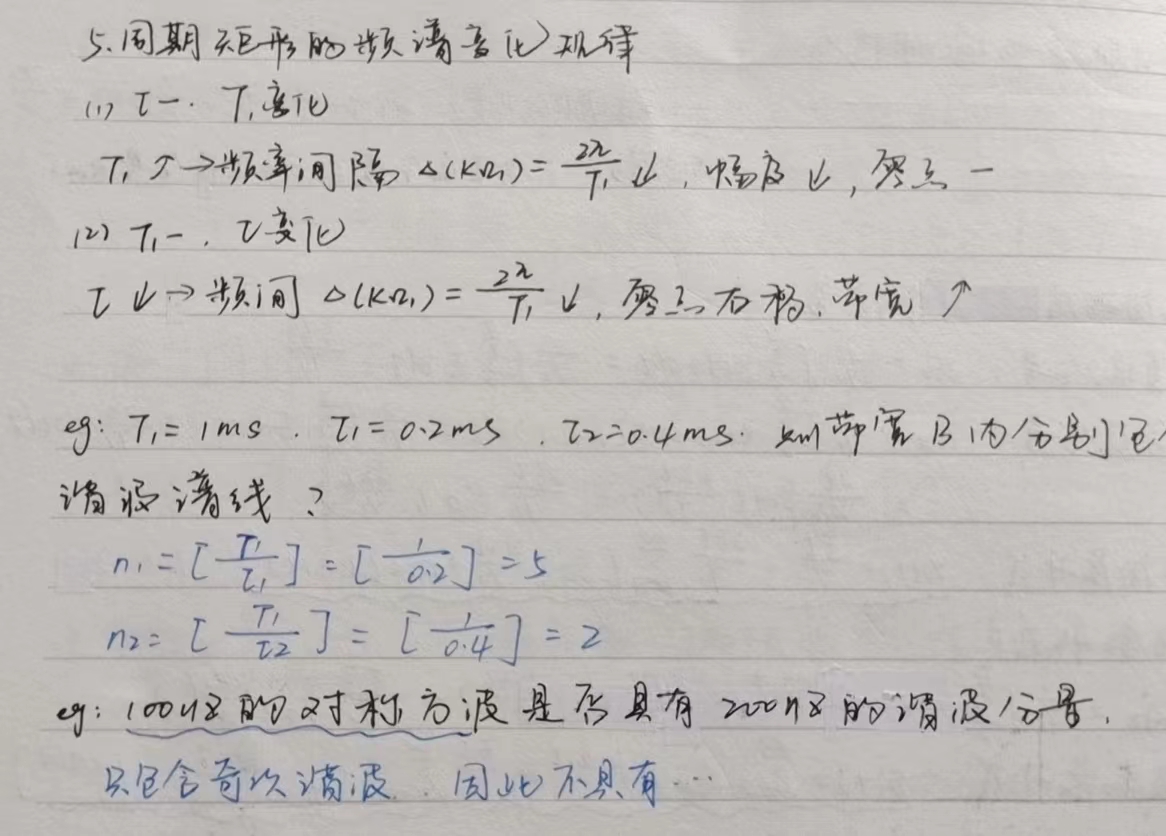 5.周期矩形的频谱变化规律
(1) τ一. T₁变化
T₁↗→频率间隔 Δ(KΩ₁)=2π/T₁↓, 幅度↓, 零点一
(2) T₁一. τ变化
τ↓→频间 Δ(KΩ₁)=2π/T₁↓, 零点右移, 带宽↗
eg: T₁=1ms. τ₁=0.2ms. τ₂=0.4ms. 则带宽B内分别包
谐波谱线?
n₁=[T₁/τ₁]=[1/0.2]=5
n₂=[T₁/τ2]=[1/0.4]=2
eg: 100Hz的对称方波是否具有200Hz的谐波分量.
只包含奇次谐波. 因此不具有…